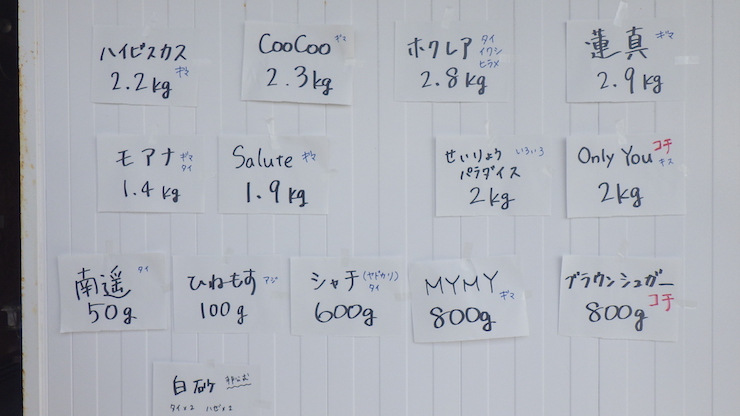 ハイビスカス
2.2kg ギマ
CooCoo ギマ
2.3kg
ホクレア タイ
イワシ
ヒラメ
2.8kg
蓮真 ギマ
2.9kg
モアナ ギマ
タイ
1.4kg
Salute ギマ
1.9kg
せいりょう いろいろ
パラダイス
2kg
Only You コチ
キス
2kg
南遥 タイ
50g
ひねもす アジ
100g
シャチ (ヤドカリ)
タイ
600g
MYMY
800g ギマ
ブラウンシュガー
800g コチ
白砂
タイ×2 ハゼ×2